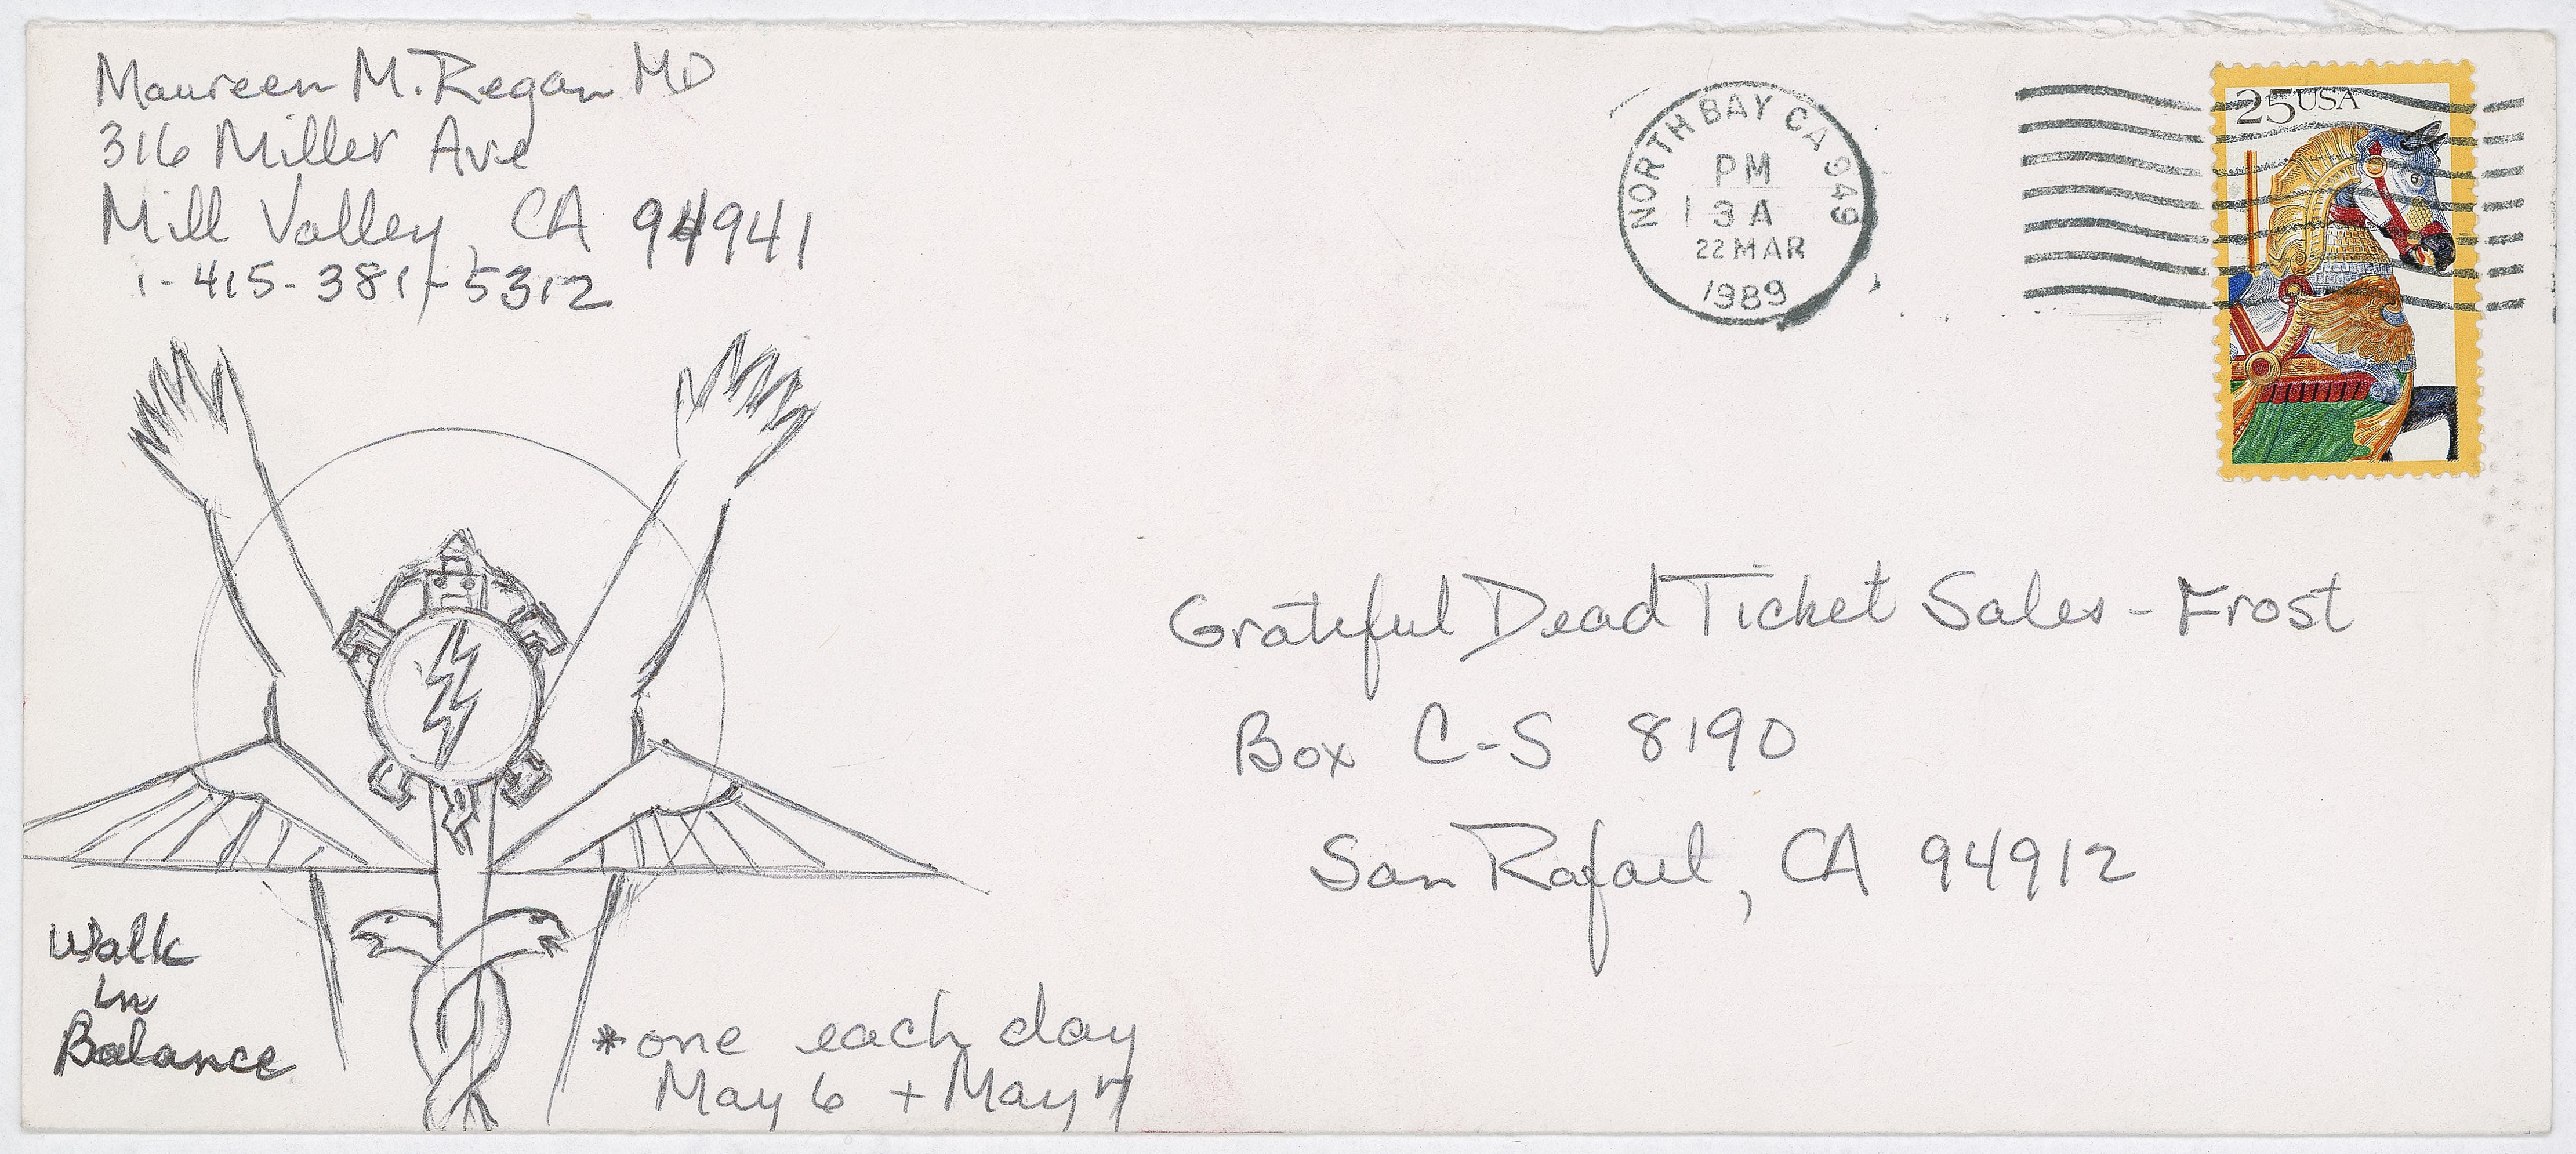 Maureen M. Regan MD
316 Miller Ave
Mill Valley, CA 94941
1-415-381-5312
NORTH BAY CA 949
PM
3 A
22 MAR
1989
25 USA
Grateful Dead Ticket Sales - Frost
Box C-S 8190
San Rafael, CA 94912
Walk
in
Balance
*one each day
May 6 + May 7